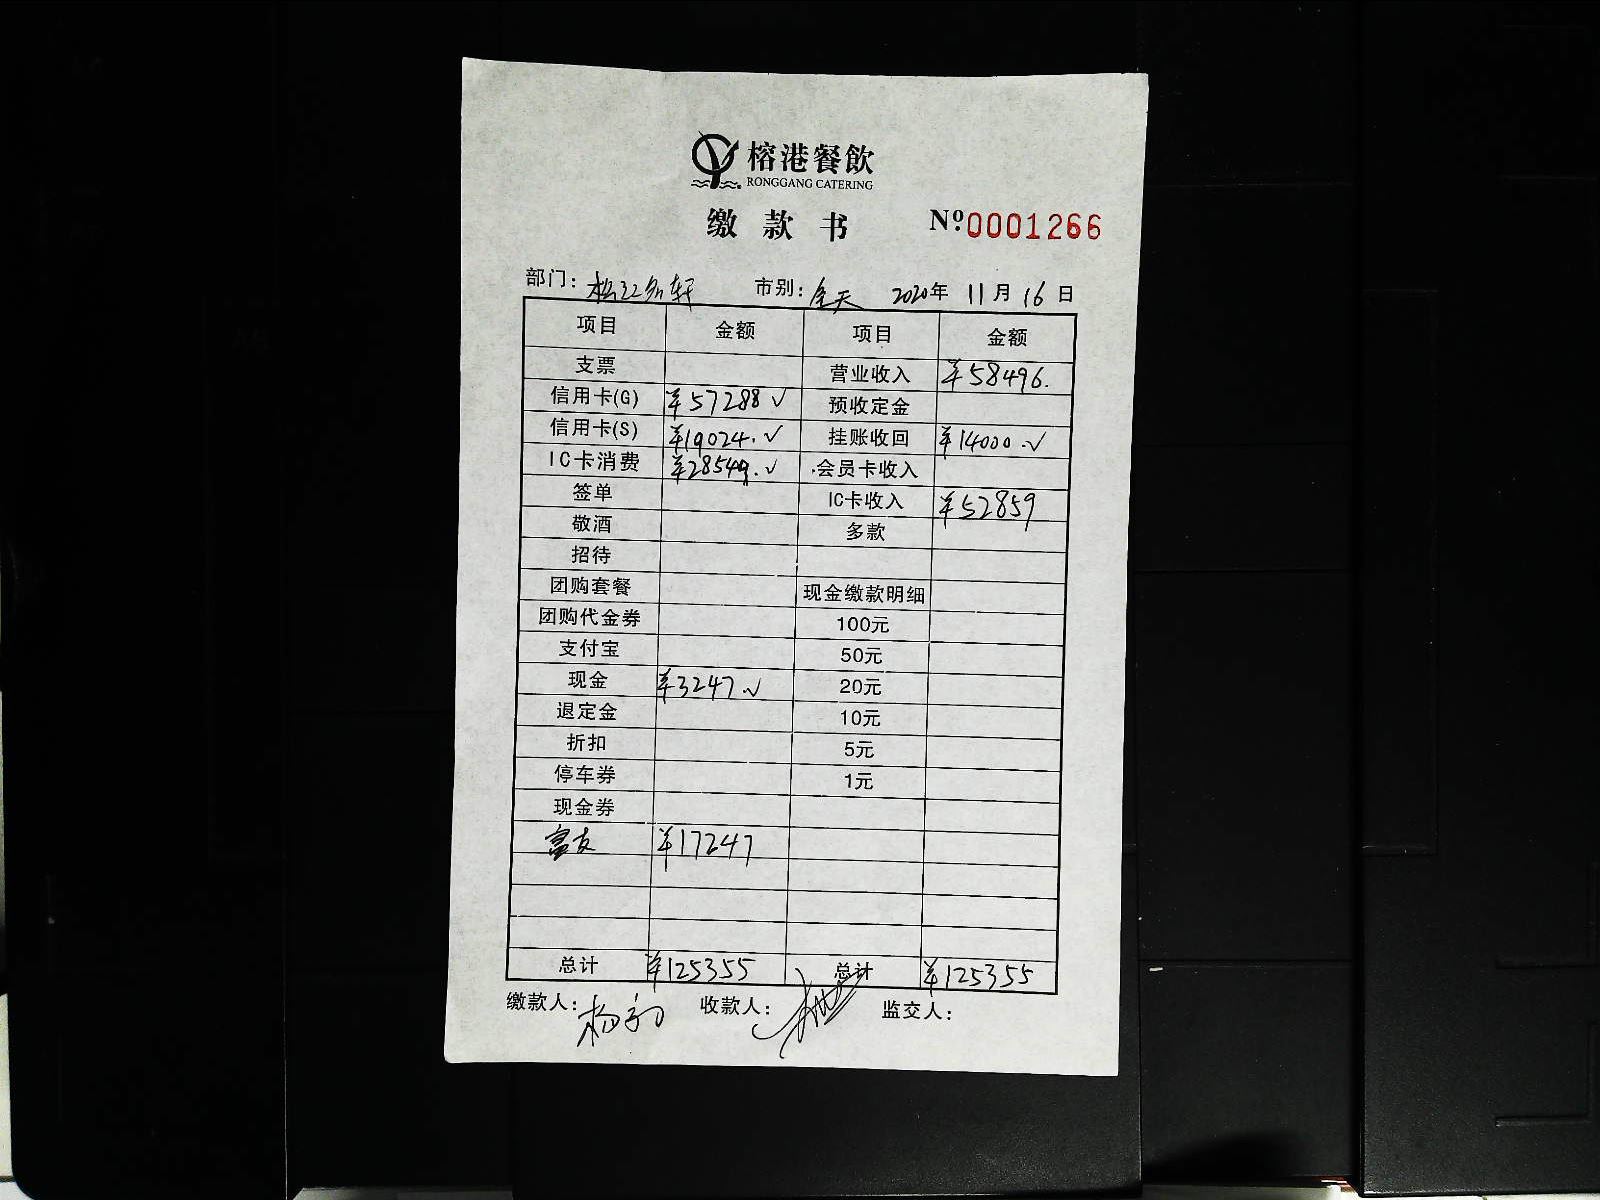 榕港餐飲
RONGGANG CATERING
缴款书 Nº.0001266
部门: 松江名轩 市别: 全天 2020年 11月 16日
项目 金额 项目 金额
支票 营业收入 ¥58496.
信用卡(G) ¥57288 ✓ 预收定金
信用卡(S) ¥19024. ✓ 挂账收回 ¥14000. ✓
IC卡消费 ¥28549. ✓ 会员卡收入
签单 IC卡收入 ¥52859
敬酒 多款
招待
团购套餐 现金缴款明细
团购代金券 100元
支付宝 50元
现金 ¥3247. ✓ 20元
退定金 10元
折扣 5元
停车券 1元
现金券
富友 ¥17247
总计 ¥125355 总计 ¥125355
缴款人: 收款人: 监交人: